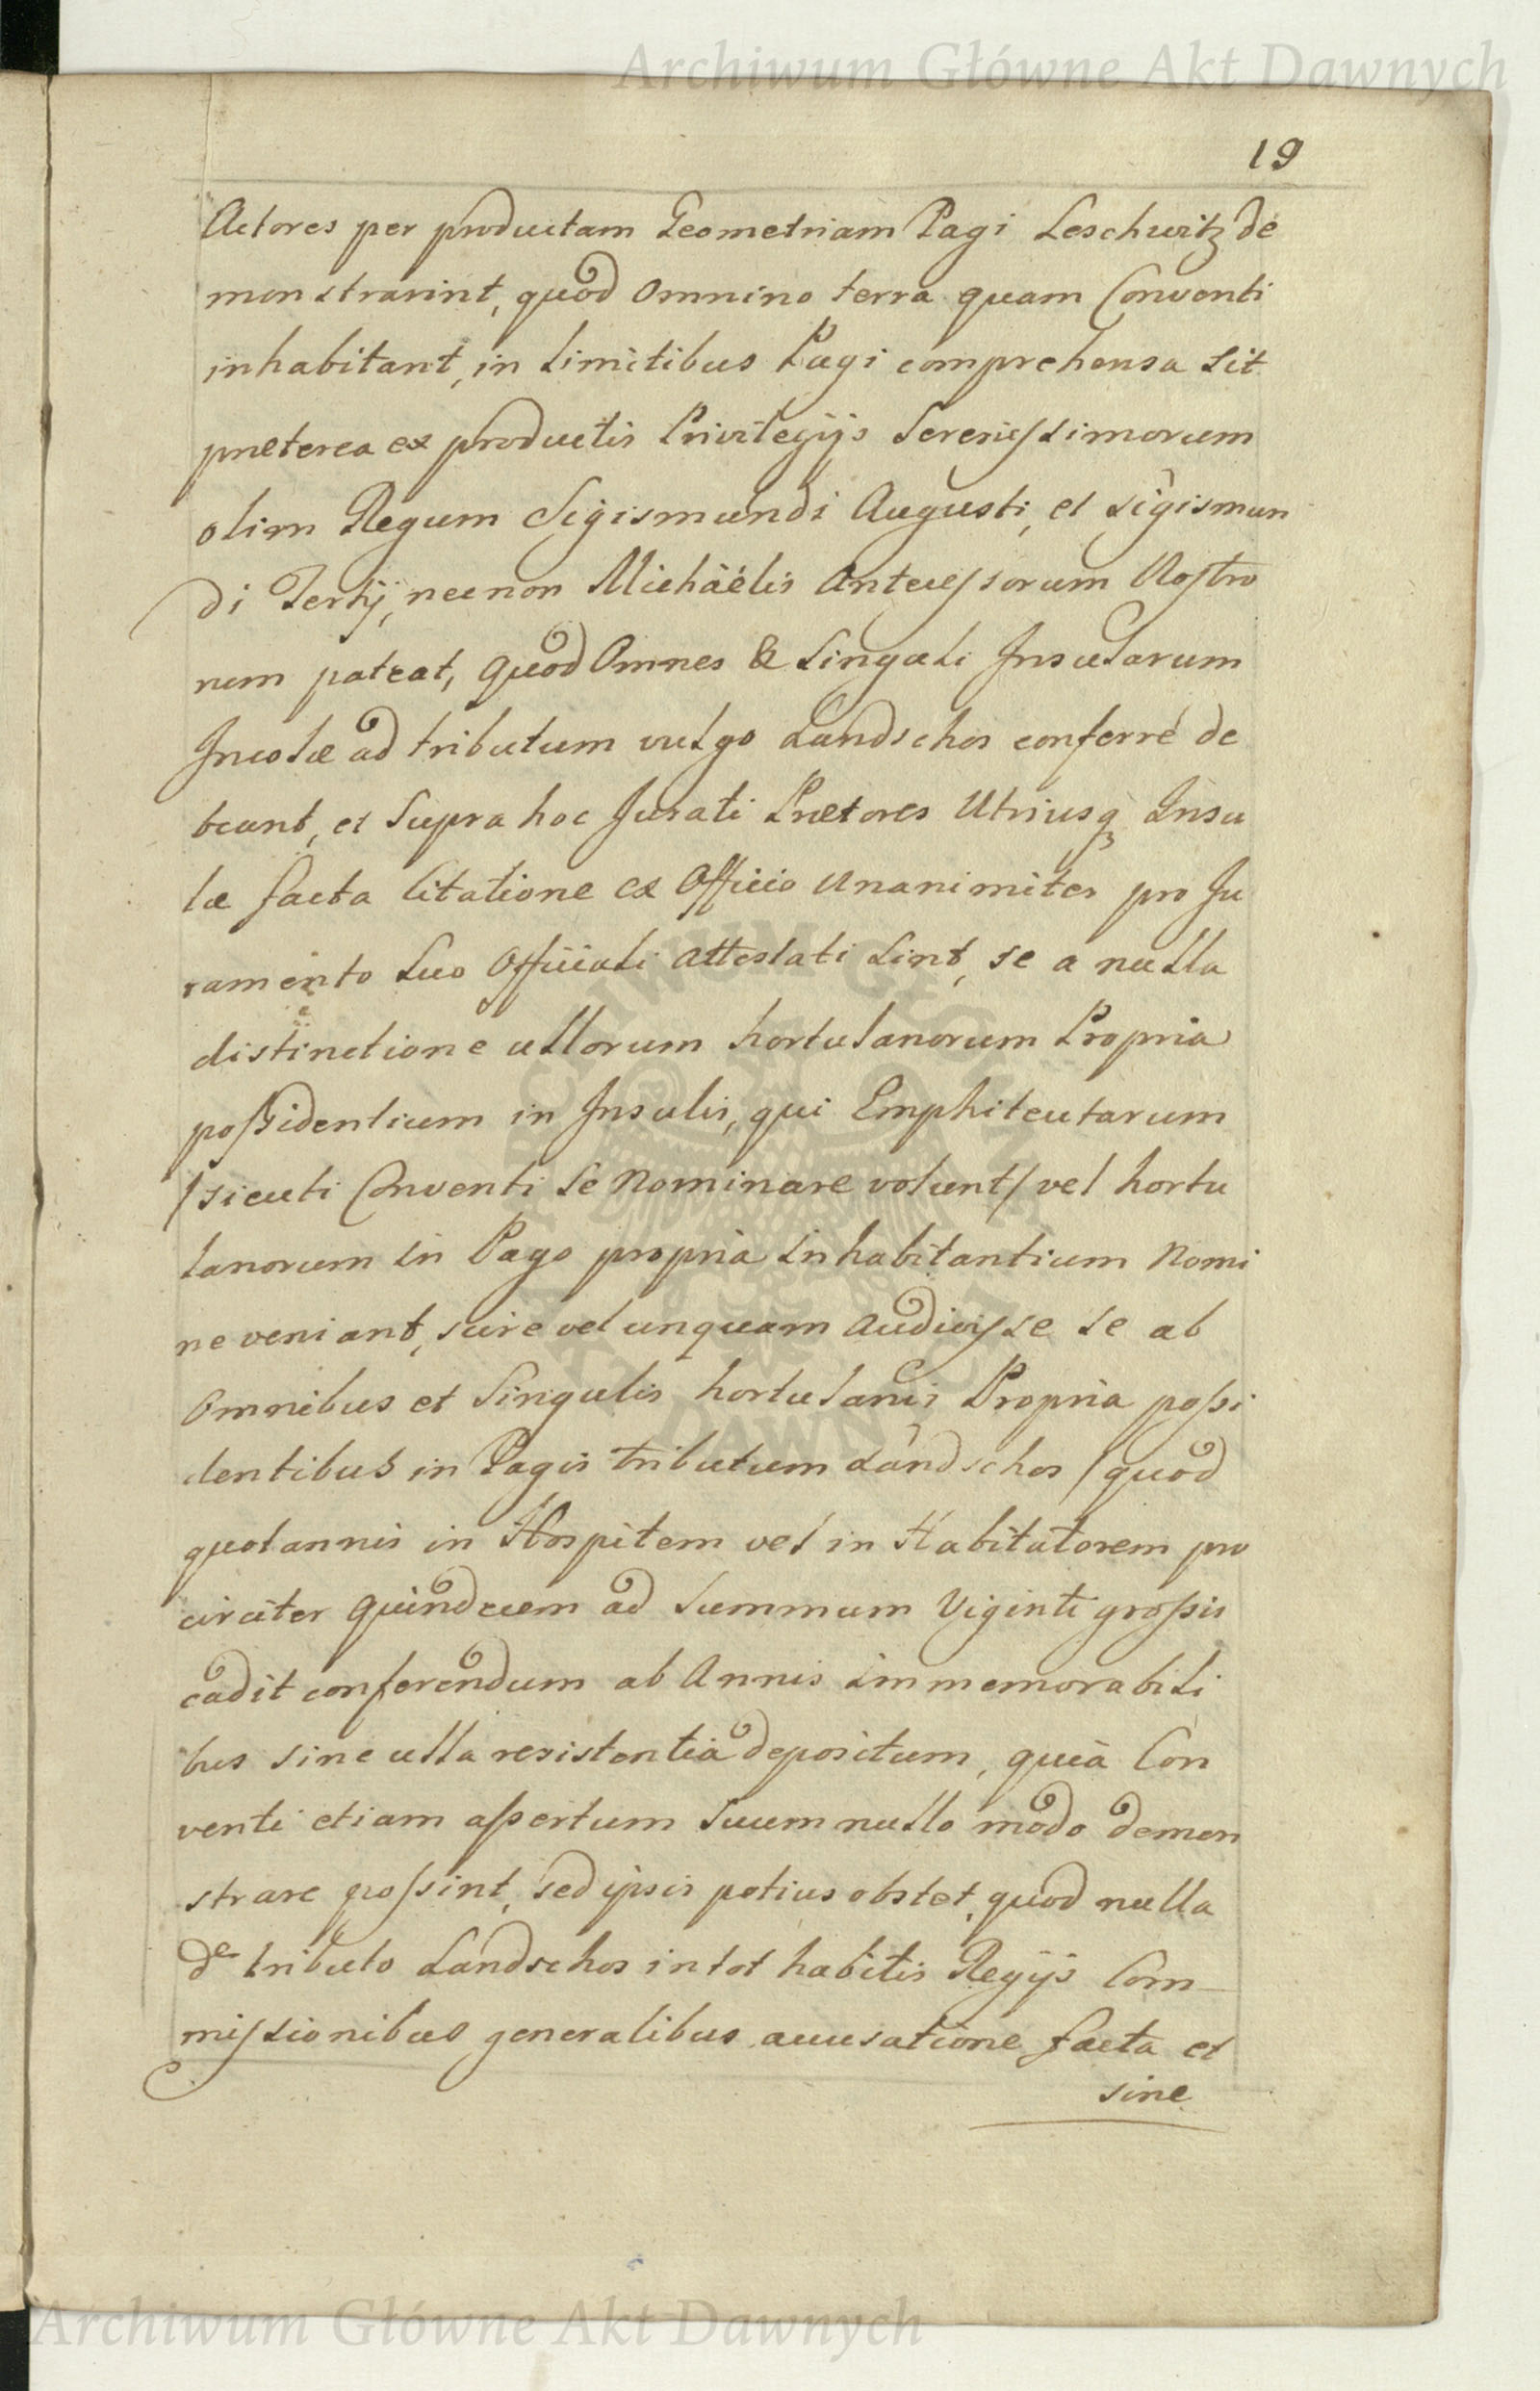 Archiwum Główne Akt Dawnych
19
Actores per productam Geometriam Pagi Leschwitz de
monstrarint, quod omnino terra quam Conventi
inhabitant, in Limitibus Pagi comprehensa sit
præterea ex productis Privilegijs Serenissimorum
olim Regum Sigismundi Augusti, et Sigismun
di Tertij, necnon Michäélis Antecessorum Nostro
rum pateat, quod Omnes & Singuli Insularum
Incolæ ad tributum vulgo Landschos conferre de
beant, et Supra hoc Jurati Prætores Utriusq Insu
læ facta Citatione ex Officio Unanimiter pro Ju
ramento Suo Officiali attestati sint, se a nulla
distinctione ullorum hortulanorum Propria
possidentium in Insulis, qui Emphiteutarum
/sicuti Conventi se Nominare volunt/ vel hortu
lanorum in Pago propria inhabitantium Nomi
ne veniant, scire vel unquam audivisse se ab
Omnibus et Singulis hortulanis Propria possi
dentibus in Pagis tributum Landschos /quod
quotannis in Hospitem vel in Habitatorem pro
circiter quindecem ad Summum Viginti grossis
cadit conferendum ab Annis immemorabili
bus sine ulla resistentia depositum, quia Con
venti etiam assertum Suum nullo modo demon
strare possint, sed ipsis potius obstet, quod nulla
de tributo Landschos in tot habitis Regijs Com
missionibus generalibus accusatione facta et
sine
ARCHIWUM GŁÓWNE AKT DAWNYCH
Archiwum Główne Akt Dawnych